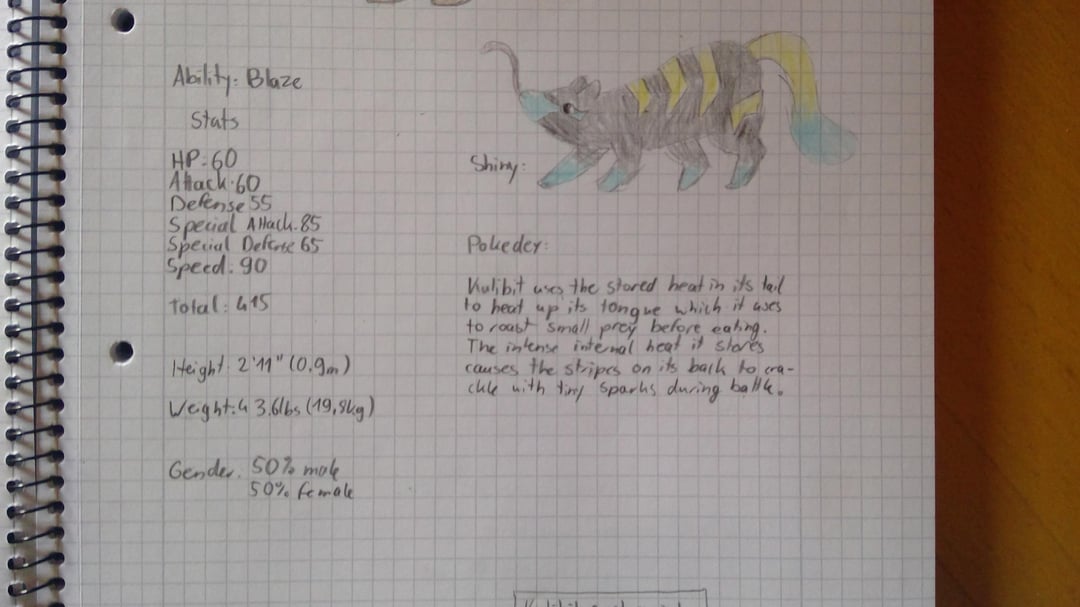 Ability: Blaze
Stats
HP: 60
Attack: 60
Defense 55
Special Attack: 85
Special Defense 65
Speed: 90
Total: 415
Height: 2'11" (0,9m)
Weight: 43.6lbs (19,8kg)
Gender: 50% male
50% female
Shiny:
Pokedex:
Kulibit uses the stored heat in its tail
to heat up its tongue which it uses
to roast small prey before eating.
The intense internal heat it stores
causes the stripes on its back to cra-
ckle with tiny sparks during battle.